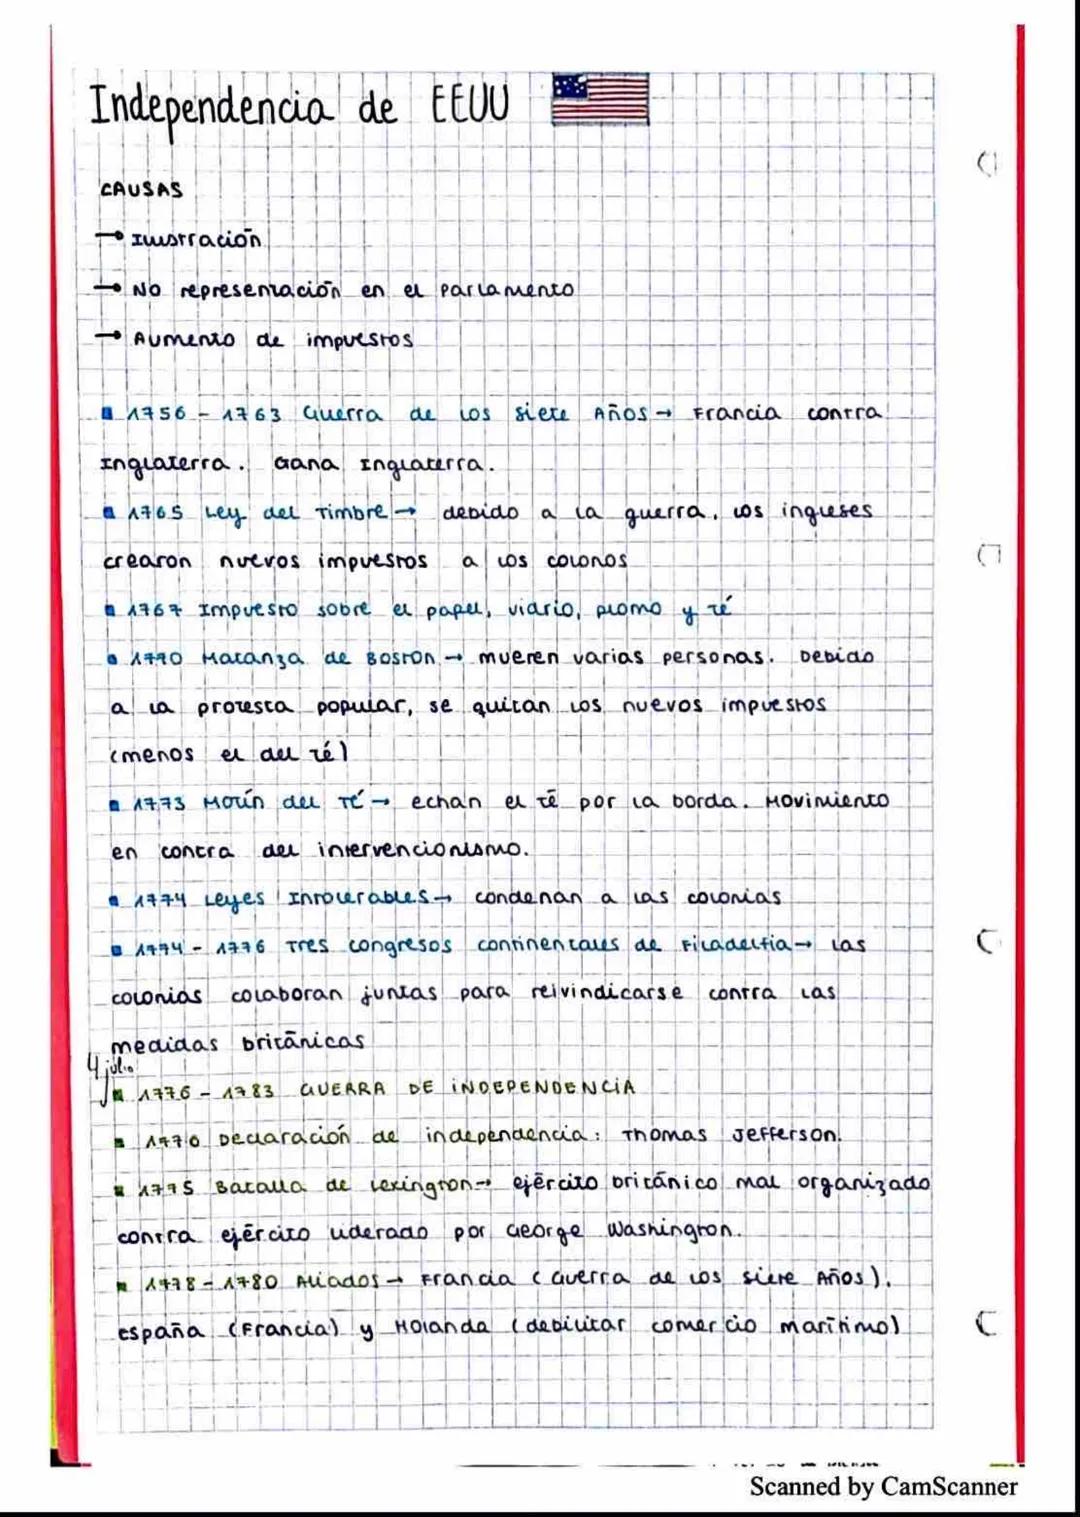 Independencia de EEUU
CAUSAS
→ Ilustración
→ No representación en el parlamento
→ Aumento de impuestos
1756 - 1763 Guerra de los siete Años → Francia contra
Inglaterra. Gana Inglaterra.
1765 Ley del Timbre → debido a la guerra, los ingleses
crearon nuevos impuestos a los colonos
1767 Impuesto sobre el papel, vidrio, plomo y té
1770 Matanza de Boston → mueren varias personas. Debido
a la protesta popular, se quitan los nuevos impuestos
(menos el del té)
1773 Motín del Té → echan el té por la borda. Movimiento
en contra del intervencionismo.
1774 Leyes Intolerables → condenan a las colonias
1774 - 1776 Tres congresos continentales de Filadelfia → las
colonias colaboran juntas para reivindicarse contra las
medidas británicas
4 julio
1776 - 1783 GUERRA DE INDEPENDENCIA
1776 Declaración de independencia: Thomas Jefferson.
1775 Batalla de Lexington → ejército británico mal organizado
contra ejército liderado por George Washington.
1778 - 1780 Aliados → Francia (Guerra de los siete Años),
españa (Francia) y Holanda (debilitar comercio marítimo)
Scanned by CamScanner